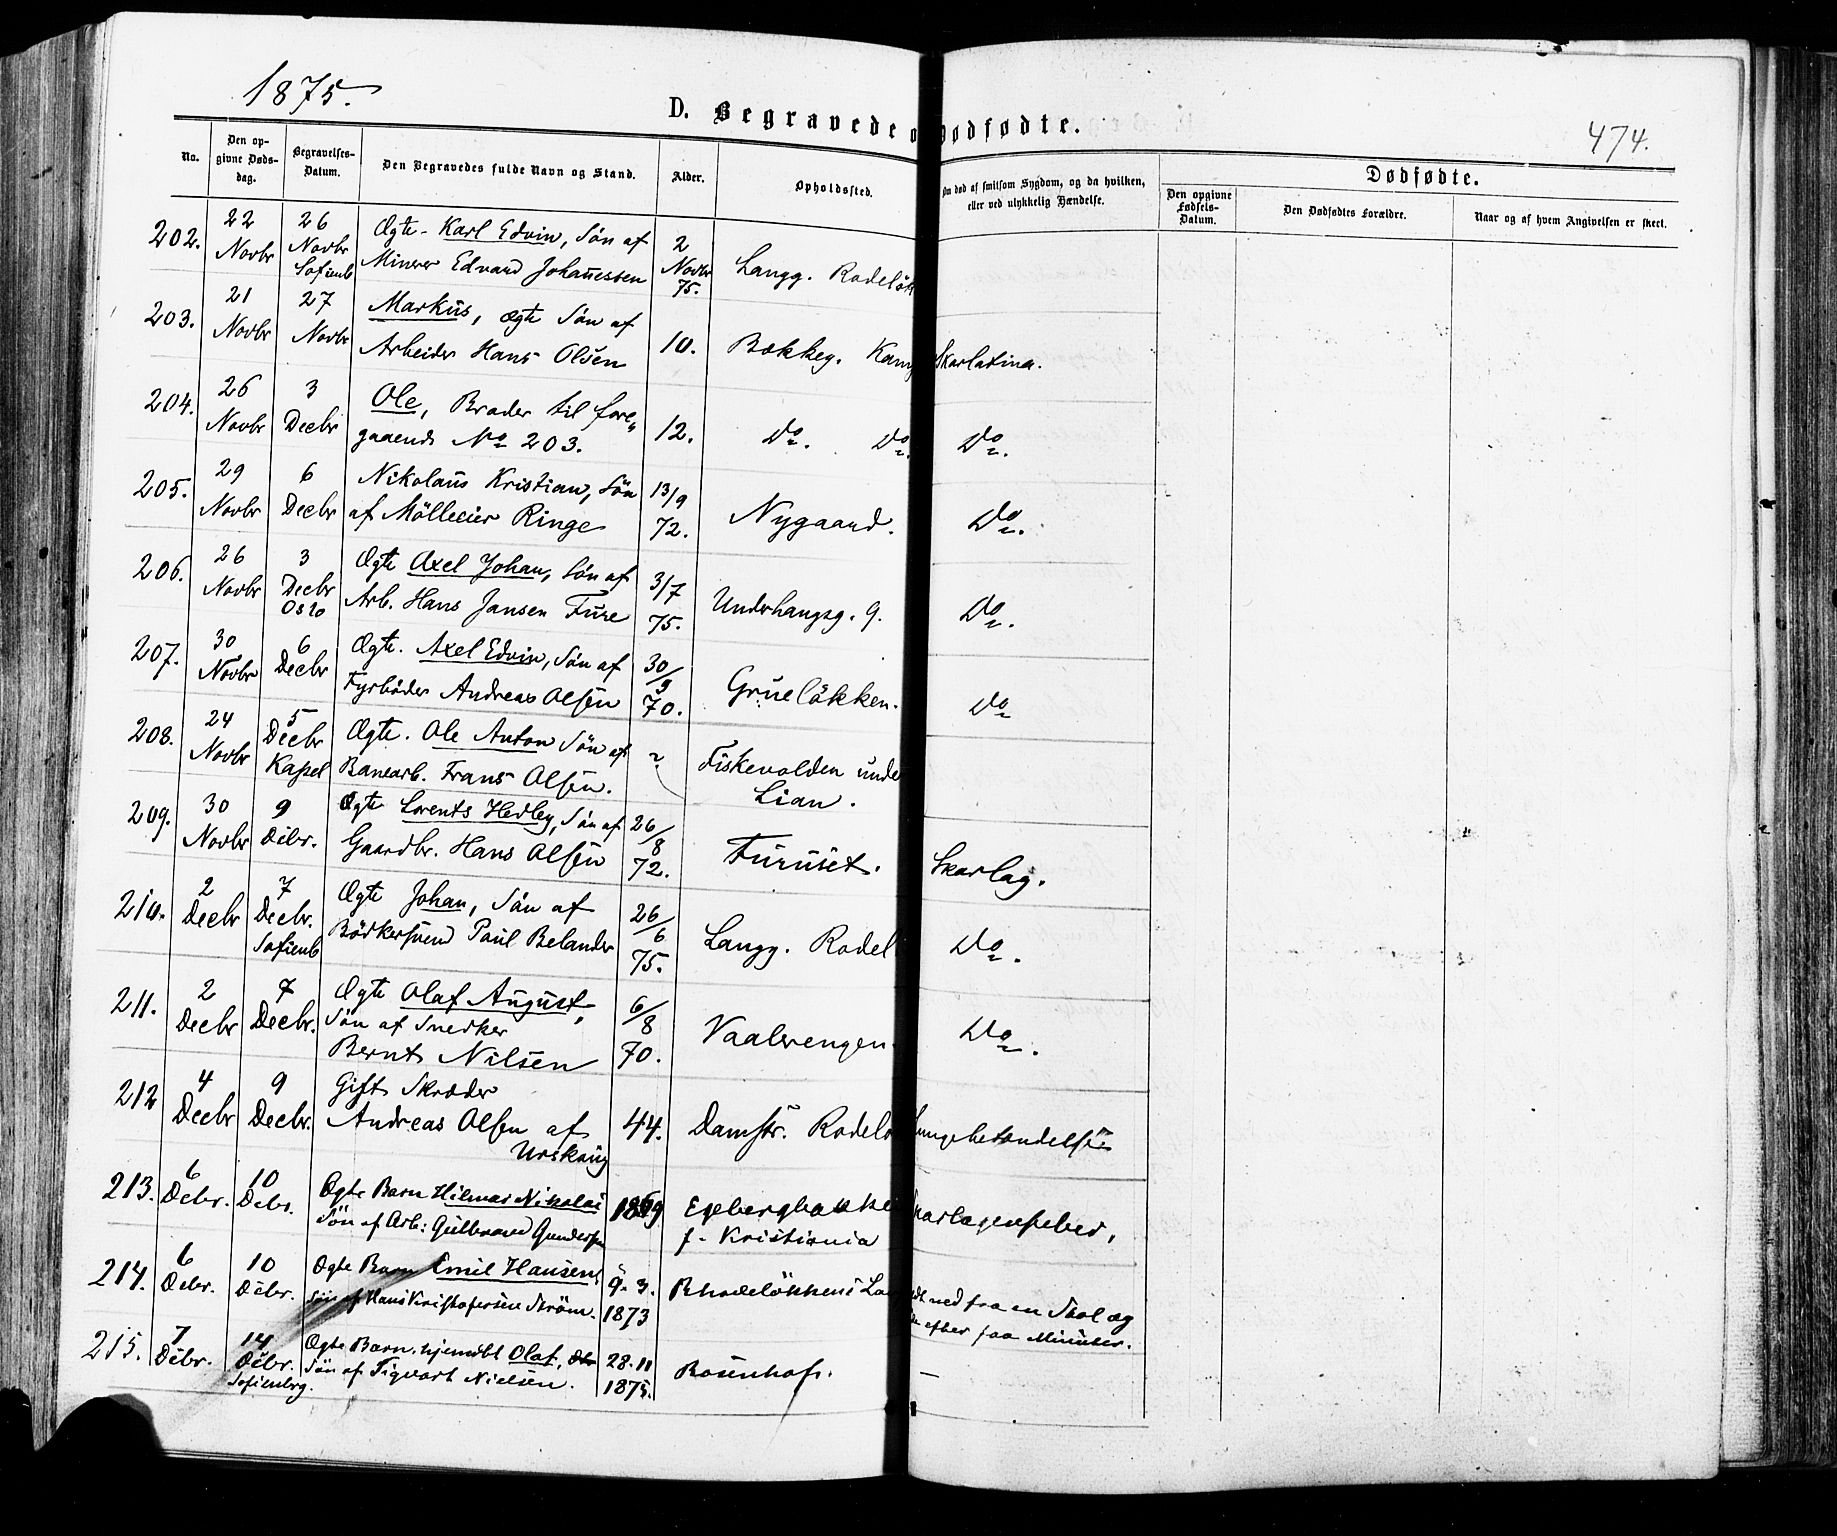 1875.
D. Begravede o Dødfødte.
474.
No.
Den op-
givne Døds-
dag.
Begravelses-
Datum.
Den Begravedes fulde Navn og Stand.
Alder.
Opholdssted.
Om død af smitsom Sygdom, og da hvilken,
eller ved ulykkelig Hændelse.
Dødfødte.
Den opgivne
Fødsels-
Datum.
Den Dødfødtes Forældre.
Naar og af hvem Angivelsen er skeet.
202. 22 Novbr 26 Novbr Sofienb
Ægte - Karl Edvin, Søn af
Minerer Edvard Johanessen
2 Novbr 75. Langg. Rodeløk
203. 21 Novbr 27 Novbr
Markus, ægte Søn af
Arbeider Hans Olsen
10. Bækkeg. Kamp Skarlatina.
204. 26 Novbr 3 Decbr
Ole, Broder til fore„
gaaende No 203.
12. Do. Do. Do.
205. 29 Novbr 6 Decbr
Nikolaus Kristian, Søn
af Möllereier Ringe
13/9 72. Nygaard. Do.
206. 26 Novbr 3 Decbr Oslo
Ægte Axel Johan, Søn af
Arb. Hans Jansen Fure
3/7 75. Underhaugsg. 9. Do.
207. 30 Novbr 6 Decbr
Ægte. Axel Edvin, Søn af
Fyrbøder Andreas Olsen
30/9 70. Grueløkken. Do
208. 24 Novbr 5 Decbr Kapel
Ægte. Ole Anton Søn af
Banearb. Frans Olsen.
? Fiskevolden unde
Lian.
209. 30 Novbr 9 Decbr.
Ægte Lorents Hedley, Søn af
Gaardbr. Hans Olsen
26/8 72. Furuset. Skarlag.
210. 2 Decbr 7 Decbr. Sofienb
Ægte Johan, Søn af
Bödkersvend Paul Belander
26/6 75. Langg. Rodel Do.
211. 2 Decbr 7 Decbr.
Ægte Olaf August,
Søn af Snedker
Bernt Nilsen
6/8 70. Vaalerengen. Do.
212 4 Decbr 9 Decbr.
Gift Skræder
Andreas Olsen af
Urskoug
44. Damstr. Rodelø Lungebetændelse
213. 6 Decbr. 10 Decbr.
Ægte Barn Hilmar Nikolai
Søn af Arb: Gulbrand Gundersen
1869 Egebergbakken
f. Kristiania
Skarlagensfeber,
214. 6 Decbr. 10 Decbr.
Ægte Barn Emil Hansen,
Søn af Hans Kristofersen Strøm.
9. 3. 1873 Rhodeløkkens La
dt ned fra en Stol og
efter faa Minuter.
215. 7 Decbr. 14 Decbr. Sofienbrg.
Ægte Barn, hjemdbt Olaf,
Søn af Sigvart Nielsen.
28. 11 1875. Rosenhof. —